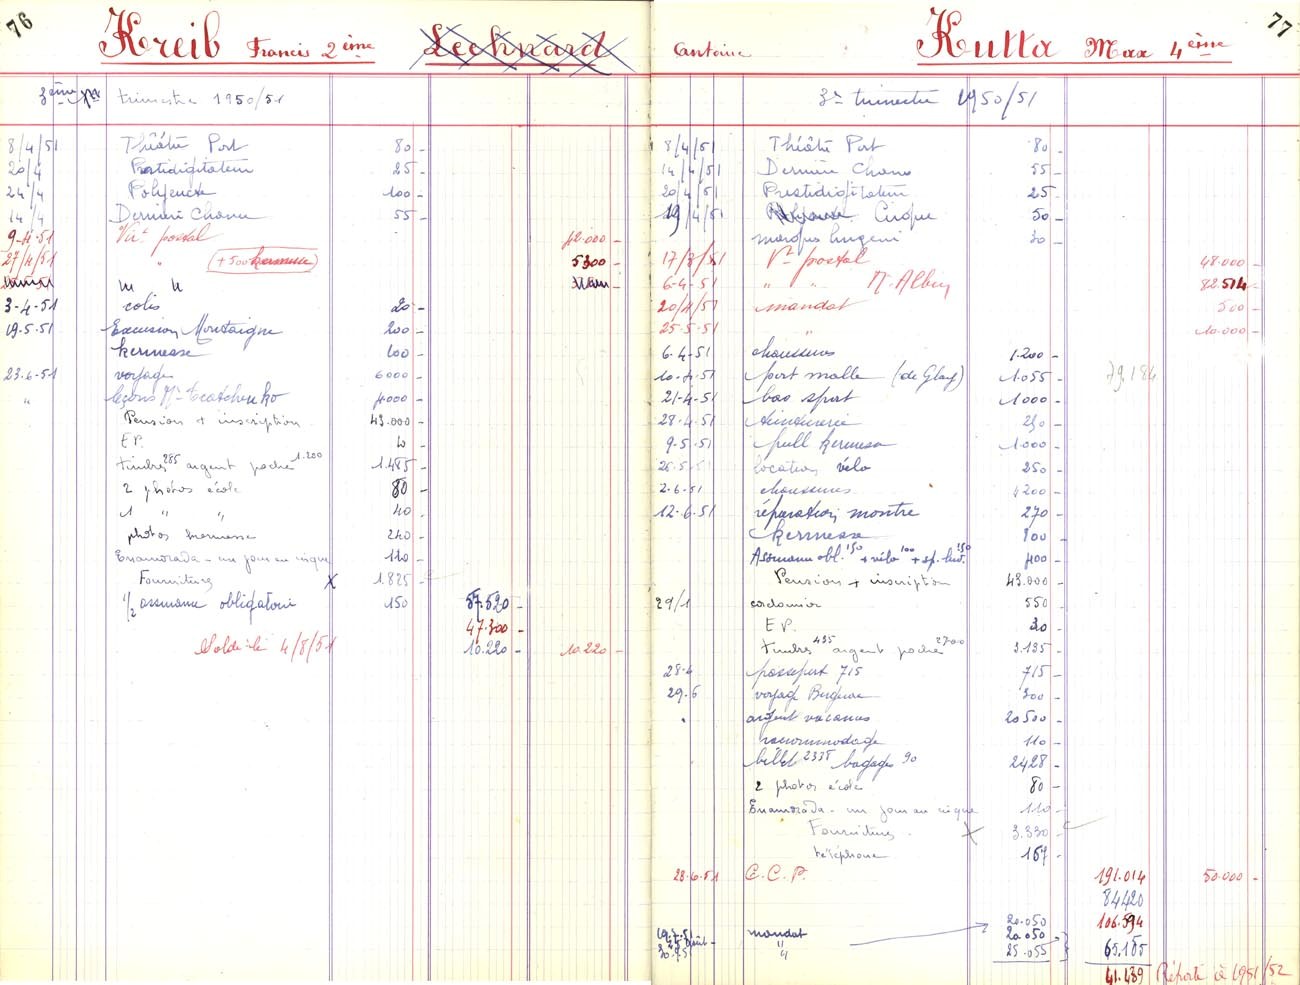 76
Kreib Francis 2ème
Lechnard
3ème trimestre 1950/51
8/4/51 Théâtre Port 80 -
20/4 Prestidigitateur 25 -
24/4 Polyeucte 100 -
14/4 Dernière Chance 55 -
9-4-51 Virt postal 42.000 -
27/4/51 " (+ 500 kermesse) 5300 -
3-4-51 colis 20 -
19.5.51 Excursion Montaigne 200 -
kermesse 600 -
23.6.51 voyage 6000 -
" leçons 4000 -
Pension + inscription 43.000 -
E P.
timbres 285 argent poche 1.200 1.485 -
2 photos école 80 -
1 " " 40 -
photos kermesse 240 -
Enamorada - un jour au cirque 110 -
Fournitures X 1.825 -
1/2 assurance obligatoire 150 57.520 -
47.300 -
Soldé le 4/8/51 10.220 - 10.220 -
77
Antoine
Kutta Max 4ème
3e trimestre 1950/51
8/4/51 Théâtre Port 80 -
14/4/51 Dernière Chance 55 -
20/4/51 Prestidigitateur 25 -
19/4/51 Cirque 50 -
marques lingerie 30 -
17/3/51 Vt postal 48.000 -
6-4-51 " " M. Albin 82.514 -
20/4/51 mandat 500 -
25-5-51 " 10.000 -
6-4-51 chaussures 1.200 -
10-4-51 port malle 1.055 79.184
21-4-51 bas sport 1000 -
28-4-51 teinturerie 250 -
9-5-51 pull kermesse 1000 -
26-5-51 location vélo 250 -
2-6-51 chaussures 1200 -
12-6-51 réparation montre 270 -
kermesse 800 -
Assurance obl. 150 + vélo 100 + sp. 150 400 -
Pension + inscription 43.000 -
29/1 cordonnier 550 -
E P. 20 -
timbres 435 argent poche 2700 3.135 -
28-6 passeport 715 715 -
29.6 voyage Bergerac 300 -
argent vacances 20500 -
raccommodage 110 -
billet 2338 bagages 90 2428 -
2 photos école 80 -
Enamorada - un jour au cirque 110 -
Fournitures X 3.330 -
téléphone 167 -
28-6-51 C.C.P. 191.014 50.000 -
84420
20.050 106.594
19.7.51 mandat 20.050
" 25.055 65.155
41.439 Reporté à 1951/52